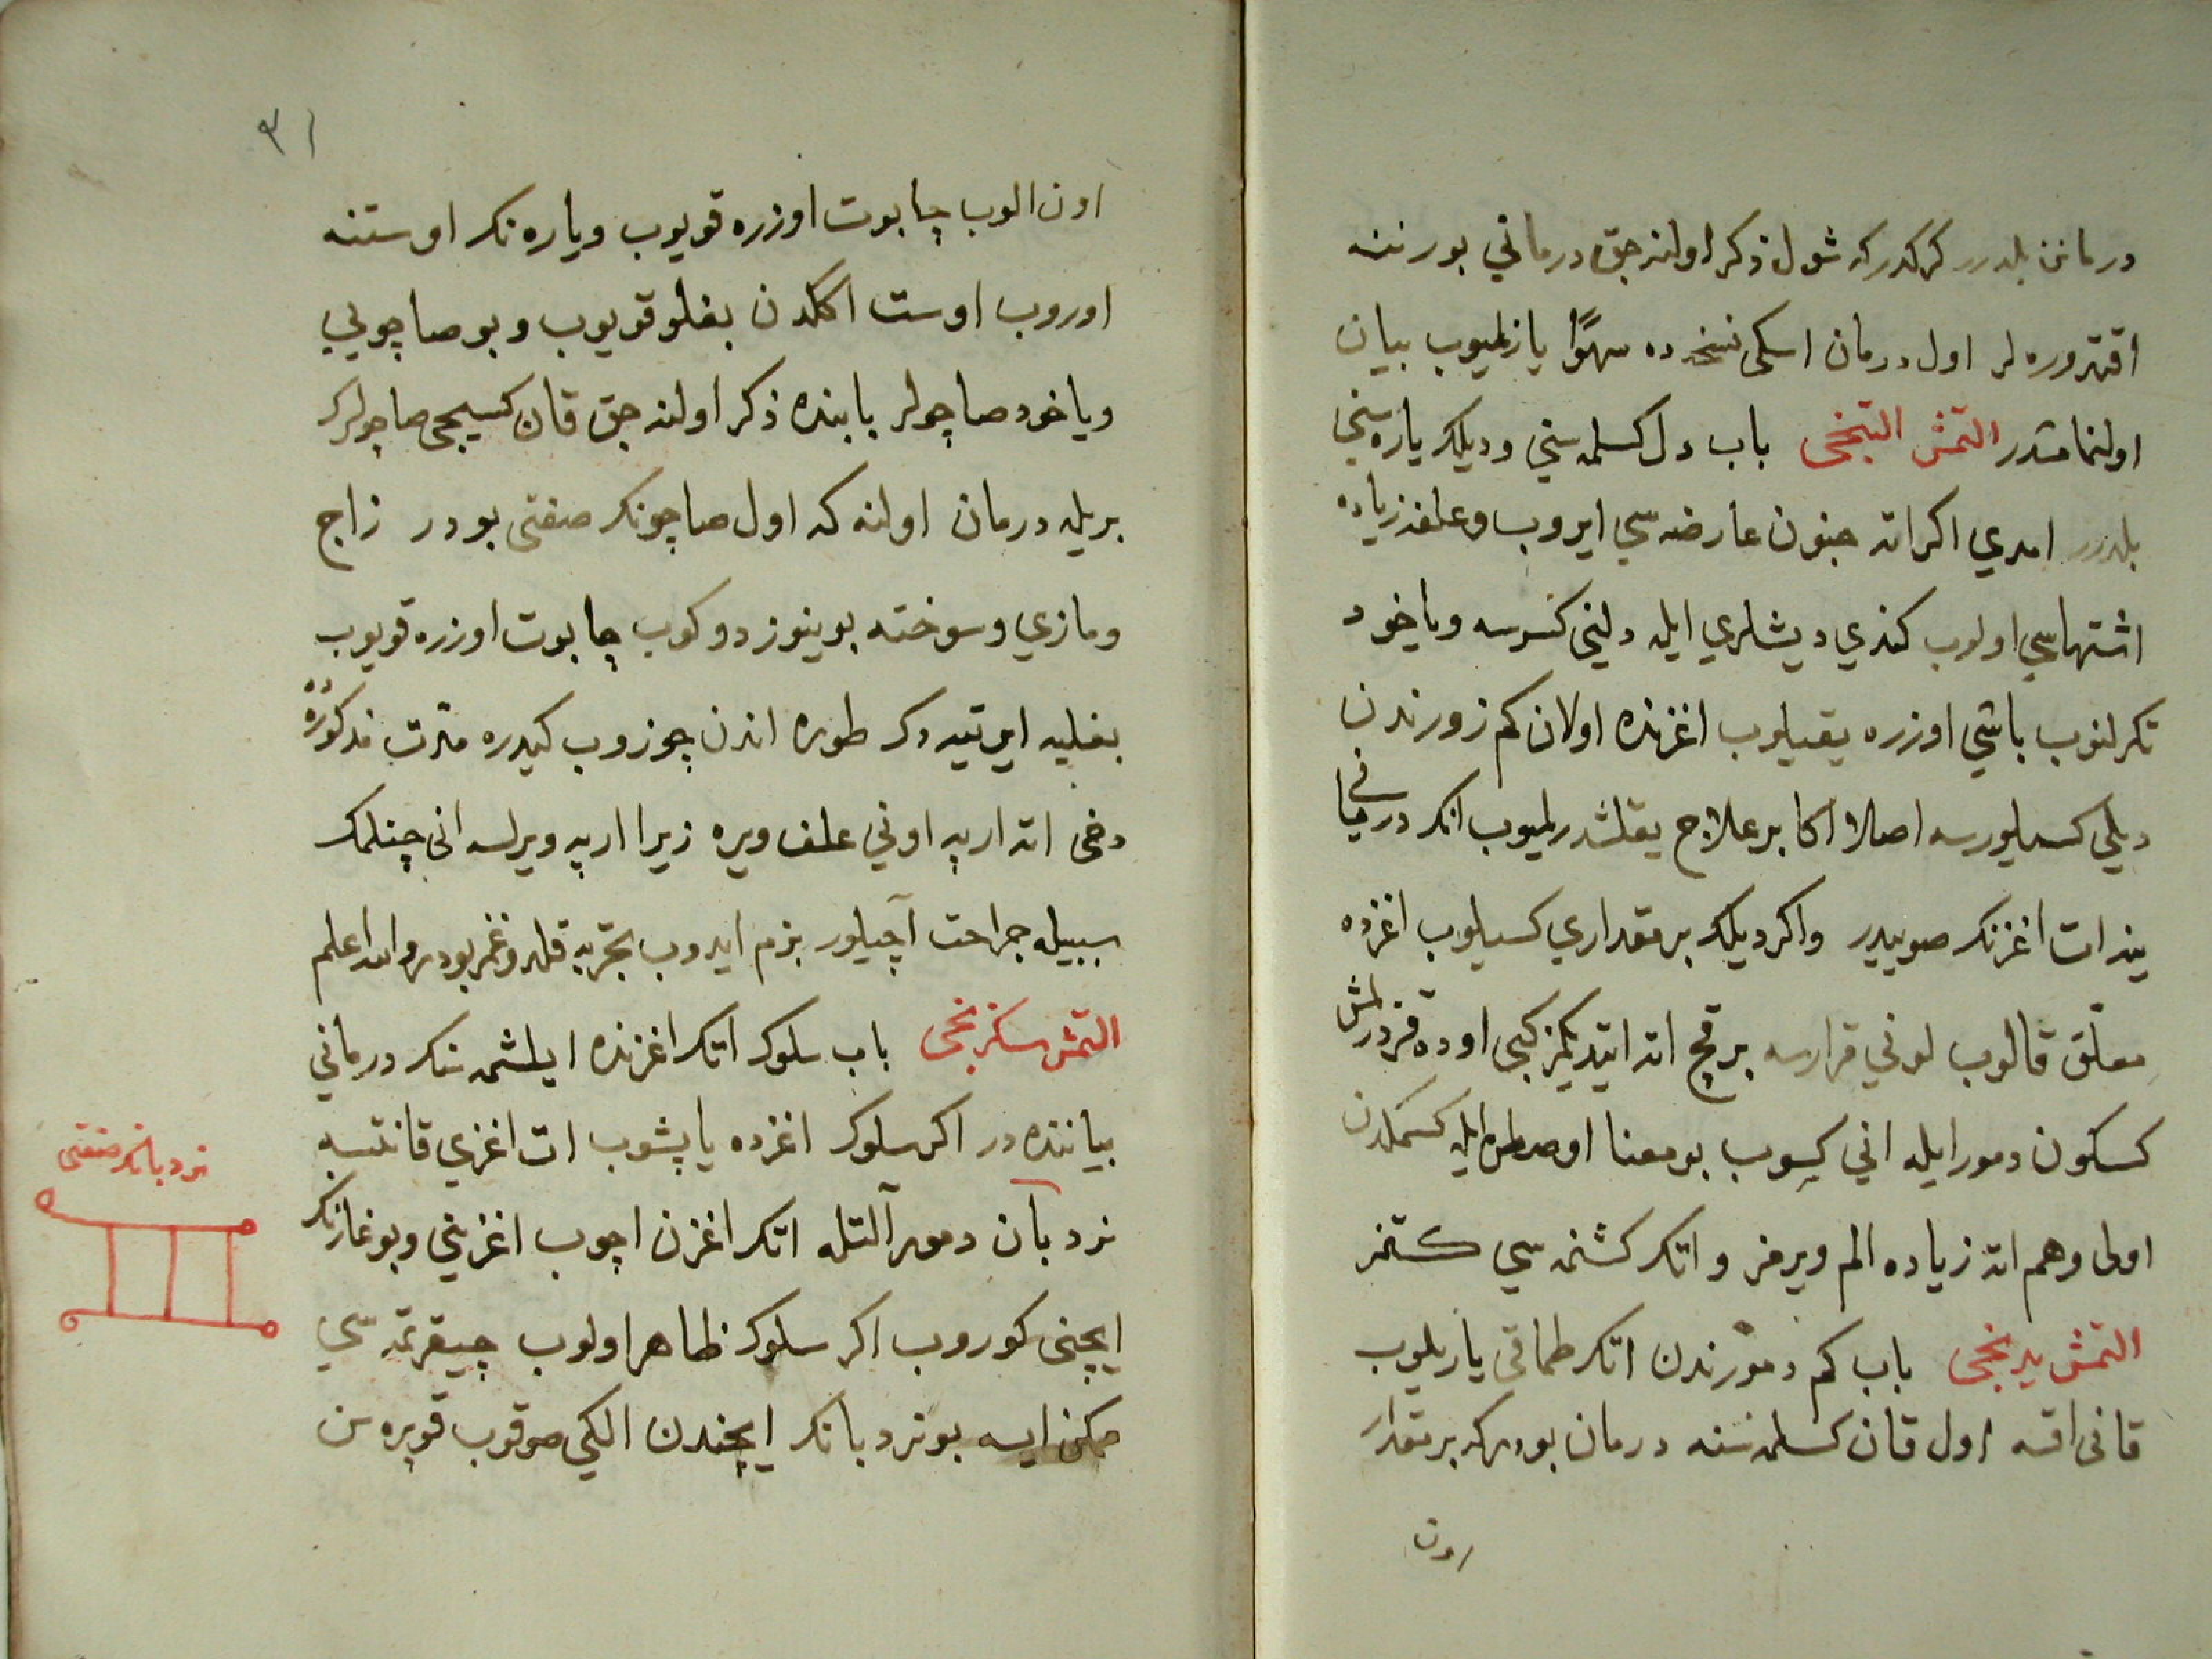 درمانن بلدرر کرکدرکه شول ذکر اولنه جق درماني بورننه
اقتدوره لر اول درمان اسکی نسخه ده سهوًا یازلمیوب بیان
اولنمامشدر التمش التنجی باب دل کسلمه سني ودیلک یاره سني
بلدرر امدي اکر اته جنون عارضه سي ایروب وعلفه زیاده
اشتهاسي اولوب کندي دیشلري ایله دلینی کسرسه ویاخود
تکرلنوب باشي اوزره یقیلوب اغزنده اولان کم زورندن
دیلي کسیلورسه اصلا اکا بر علاج یقلشدرلمیوب انک درمانی
ینه ات اغزنک صوییدر واکر دیلک بر مقداري کسیلوب اغزده
معلق قالوب لوني قرارسه برقچ اته ایتدیکمز کبی اوده قزدرلمش
کسکون دمور ایله اني کسوب بو معنا اوصلمق ایله کسمکدن
اولی وهم اته زیاده الم ویرمز واتک کشنمه سي کتمز
التمش یدنجی باب کم دمورندن اتک طماقی یاریلوب
قانی اقسه اول قان کسلمه سنه درمان بودرکه بر مقدار
اون
٣١
اون الوب چابوت اوزره قویوب ویاره نک اوستنه
اوروب اوست اککدن بغلو قویوب وبو صاچویي
ویاخود صاچولر بابنده ذکر اولنه جق قان کسیجی صاچولرک
بریله درمان اولنه که اول صاچونک صفتی بودر زاج
ومازي وسوخته بوینوز دوکوب چابوت اوزره قویوب
بغلیه ایرتیه دک طوره اندن چوزوب کیدره مدت مذکوره ده
دخی اته ارپه اوني علف ویره زیرا ارپه ویرلسه انی چینمک
سببیله جراحت آچیلور بزم ایدوب تجربه قلدوغمز بودر والله اعلم
التمش سکزنجی باب سلوک اتک اغزنده ایلشمه سنک درماني
بیاننده در اکر سلوک اغزده یاپشوب ات اغزي قانتسه
نردبان دمور آلتله اتک اغزن اچوب اغزیني وبوغازنک
ایچنی کوروب اکر سلوک ظاهر اولوب چیقرمه سي
ممکن ایسه بو نردبانک ایچندن الکي صوقوب قوپره سن
نردبانک صفتی